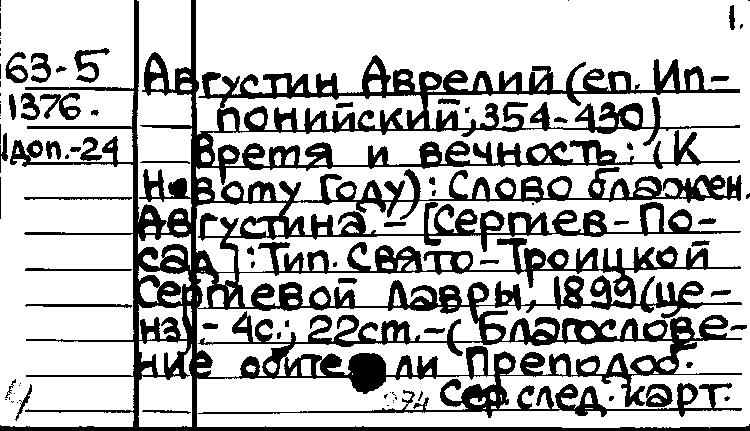 1.
63-5 Августин Аврелий (еп. Ип-
1376. понийский; 354-430)
1доп.-24 Время и вечность: (К
Новому Году): Слово блажен.
Августина.- [Сергиев-По-
сад]: Тип. Свято-Троицкой
Сергиевой Лавры, 1899 (це-
нз).- 4с.; 22cm.-( Благослове-
ние обители Преподоб.
274 Сер. след. карт.